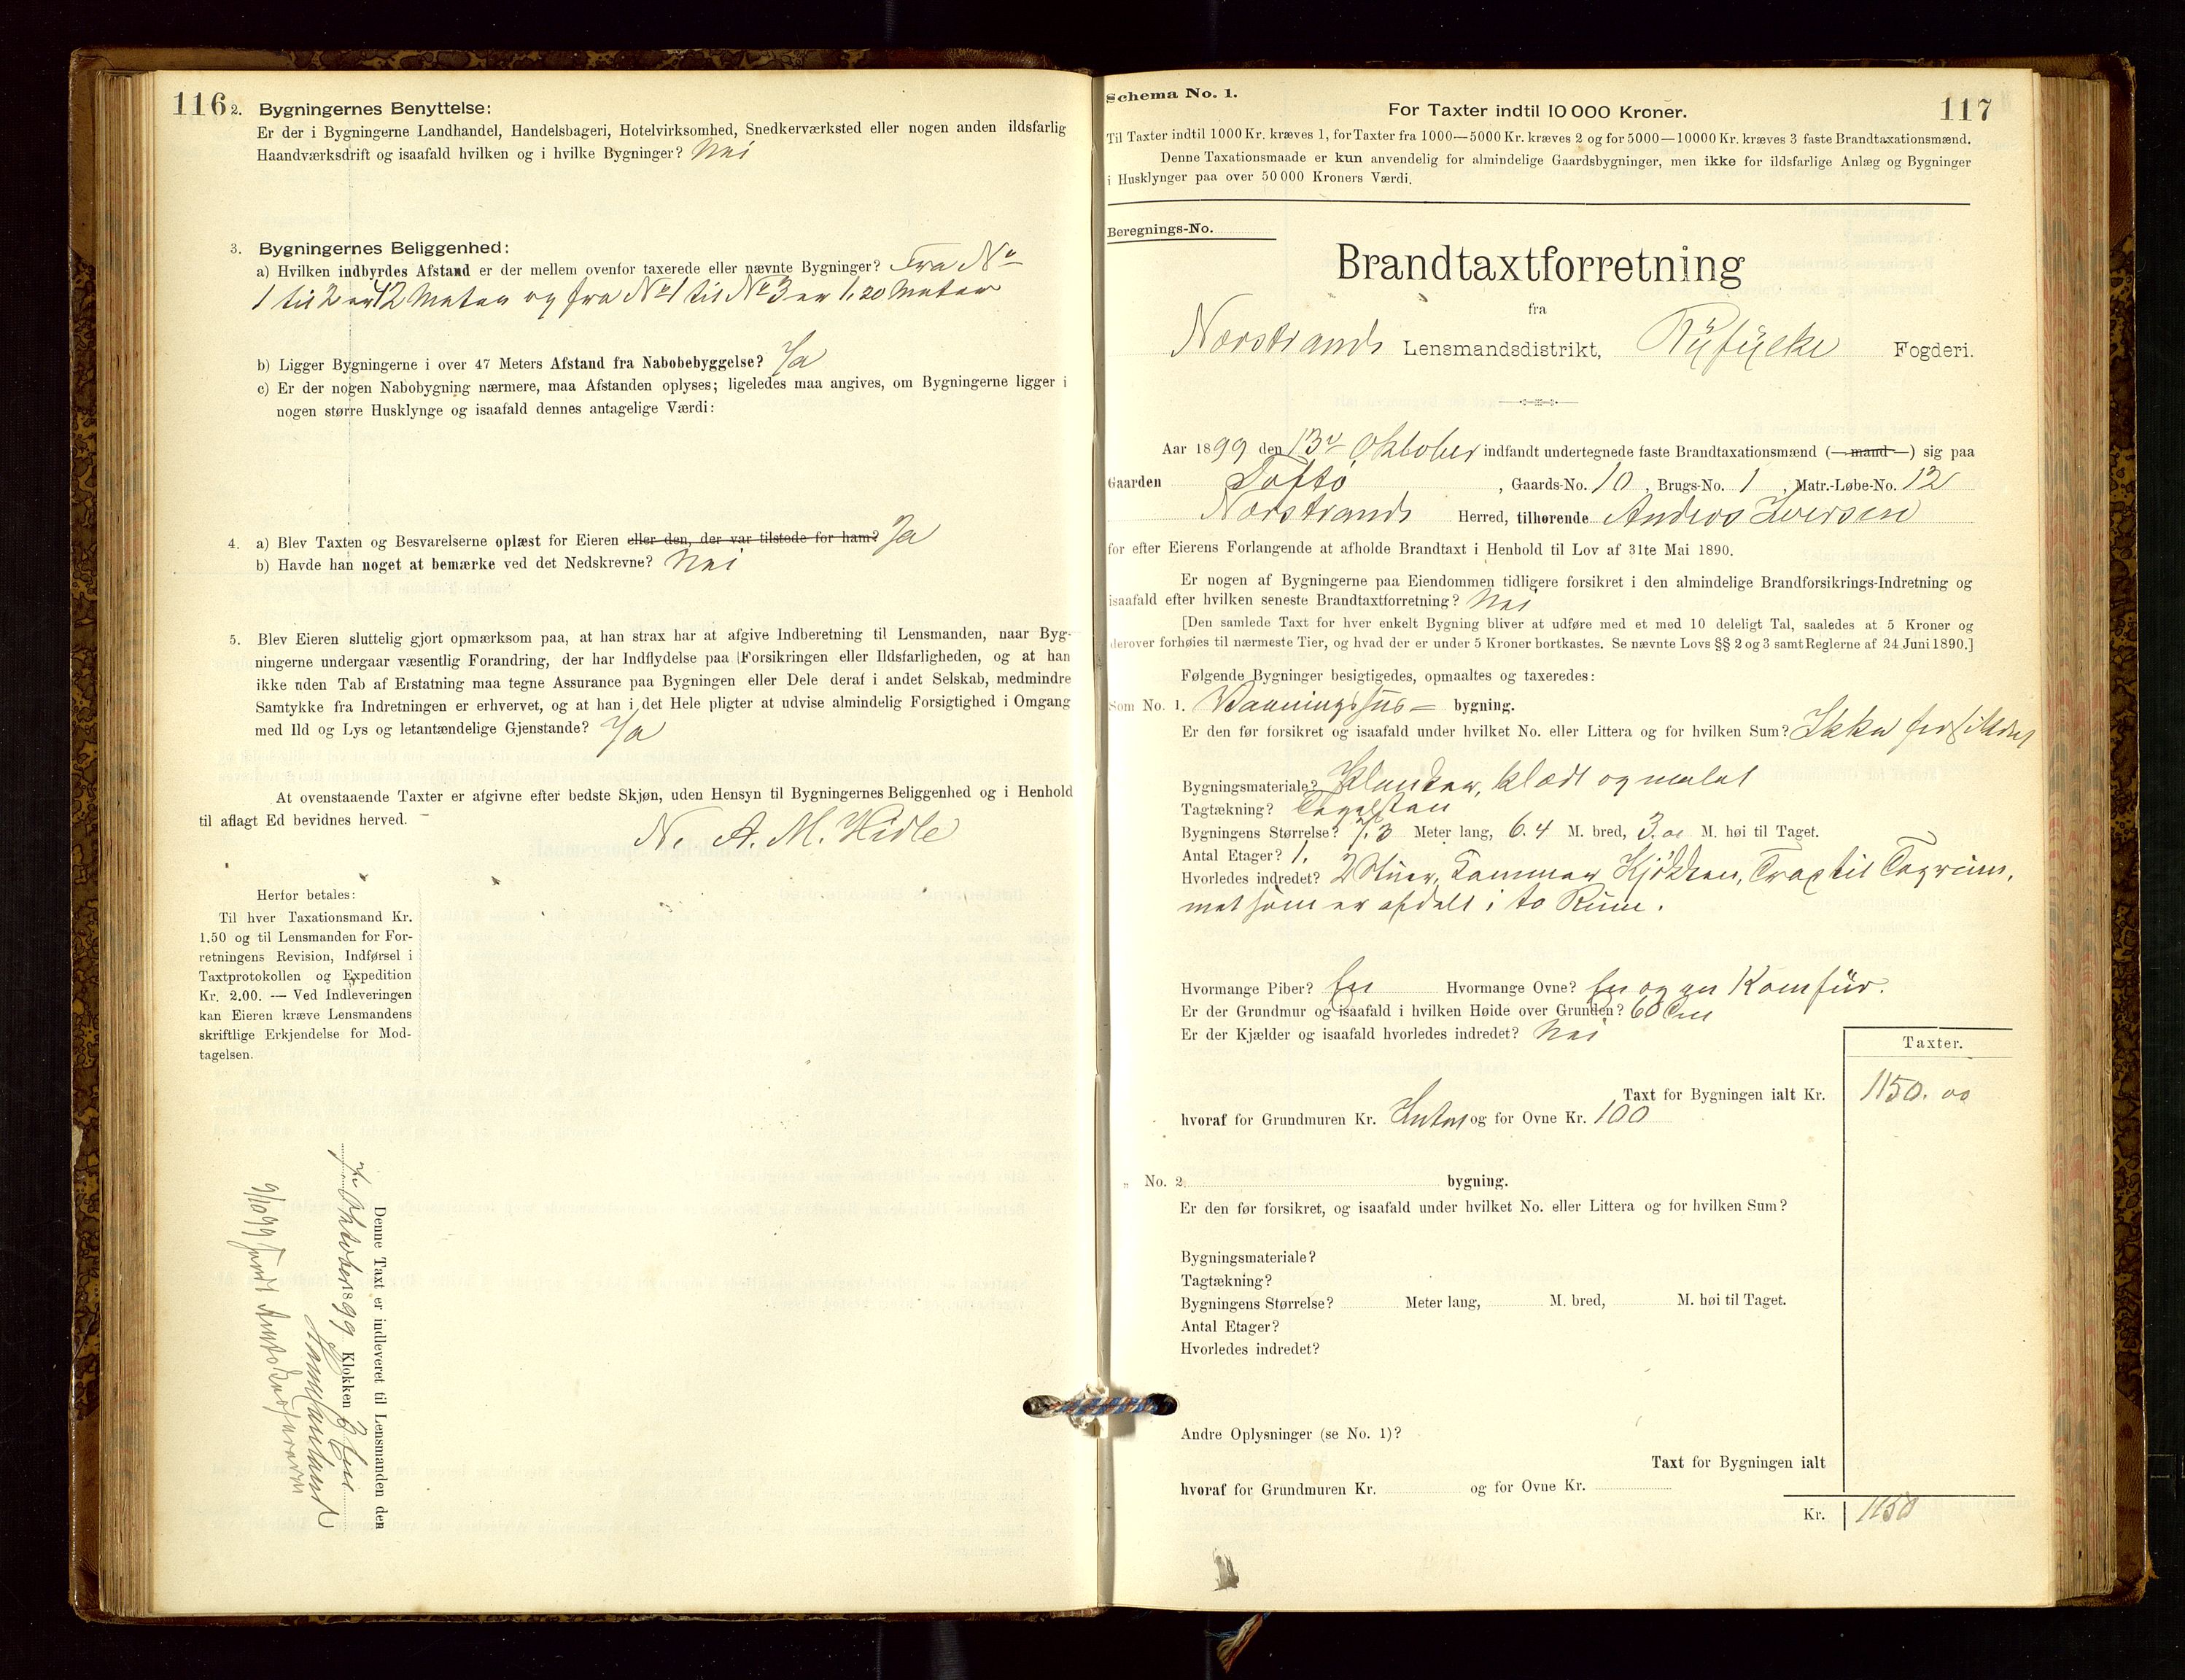 116
2. Bygningernes Benyttelse:
Er der i Bygningerne Landhandel, Handelsbageri, Hotelvirksomhed, Snedkerværksted eller nogen anden ildsfarlig
Haandværksdrift og isaafald hvilken og i hvilke Bygninger? Nei
3. Bygningernes Beliggenhed:
a) Hvilken indbyrdes Afstand er der mellem ovenfor taxerede eller nævnte Bygninger? Fra No
1 til 2 er 12 Meter og fra No 1 til No 3 er 1,20 Meter
b) Ligger Bygningerne i over 47 Meters Afstand fra Nabobebyggelse? Ja
c) Er der nogen Nabobygning nærmere, maa Afstanden oplyses; ligeledes maa angives, om Bygningerne ligger i
nogen større Husklynge og isaafald dennes antagelige Værdi:
4. a) Blev Taxten og Besvarelserne oplæst for Eieren eller den, der var tilstede for ham? Ja
b) Havde han noget at bemærke ved det Nedskrevne? Nei
5. Blev Eieren sluttelig gjort opmærksom paa, at han strax har at afgive Indberetning til Lensmanden, naar Byg-
ningerne undergaar væsentlig Forandring, der har Indflydelse paa Forsikringen eller Ildsfarligheden, og at han
ikke uden Tab af Erstatning maa tegne Assurance paa Bygningen eller Dele deraf i andet Selskab, medmindre
Samtykke fra Indretningen er erhvervet, og at han i det Hele pligter at udvise almindelig Forsigtighed i Omgang
med Ild og Lys og letantændelige Gjenstande? Ja
At ovenstaaende Taxter er afgivne efter bedste Skjøn, uden Hensyn til Bygningernes Beliggenhed og i Henhold
til aflagt Ed bevidnes herved.
N. A. M. Hidle
Herfor betales:
Til hver Taxationsmand Kr.
1.50 og til Lensmanden for For-
retningens Revision, Indførsel i
Taxtprotokollen og Expedition
Kr. 2.00. — Ved Indleveringen
kan Eieren kræve Lensmandens
skriftlige Erkjendelse for Mod-
tagelsen.
Denne Taxt er indleveret til Lensmanden den
7de Oktober 1899 Klokken 3 Em
9/10 99
Schema No. 1.
For Taxter indtil 10 000 Kroner.
117
Til Taxter indtil 1000 Kr. kræves 1, for Taxter fra 1000—5000 Kr. kræves 2 og for 5000—10000 Kr. kræves 3 faste Brandtaxationsmænd.
Denne Taxationsmaade er kun anvendelig for almindelige Gaardsbygninger, men ikke for ildsfarlige Anlæg og Bygninger
i Husklynger paa over 50 000 Kroners Værdi.
Beregnings-No.
Brandtaxtforretning
fra
Nærstrands Lensmandsdistrikt, Ryfylke Fogderi.
Aar 1899 den 13de Oktober indfandt undertegnede faste Brandtaxationsmænd (—mand—) sig paa
Gaarden Toftø, Gaards-No. 10, Brugs-No. 1, Matr.-Løbe-No. 12
Nærstrands Herred, tilhørende Andros Iversen
for efter Eierens Forlangende at afholde Brandtaxt i Henhold til Lov af 31te Mai 1890.
Er nogen af Bygningerne paa Eiendommen tidligere forsikret i den almindelige Brandforsikrings-Indretning og
isaafald efter hvilken seneste Brandtaxtforretning? Nei
[Den samlede Taxt for hver enkelt Bygning bliver at udføre med et med 10 deleligt Tal, saaledes at 5 Kroner og
derover forhøies til nærmeste Tier, og hvad der er under 5 Kroner bortkastes. Se nævnte Lovs §§ 2 og 3 samt Reglerne af 24 Juni 1890.]
Følgende Bygninger besigtigedes, opmaaltes og taxeredes:
Som No. 1. Vaaningshus- bygning.
Er den før forsikret og isaafald under hvilket No. eller Littera og for hvilken Sum? Ikke forsikret
Bygningsmateriale? Planker, klædt og malet
Tagtækning? Tagsten
Bygningens Størrelse? 7.3 Meter lang, 6.4 M. bred, 3.00 M. høi til Taget.
Antal Etager? 1.
Hvorledes indredet? 2 Stuer, Kammer, Kjøkken, Trap til Tagrum,
met som er afdelt i to Rum.
Hvormange Piber? En Hvormange Ovne? En og en Komfür.
Er der Grundmur og isaafald i hvilken Høide over Grunden? 60 Cm
Er der Kjælder og isaafald hvorledes indredet? Nei
Taxter.
Taxt for Bygningen ialt Kr. 1150.00
hvoraf for Grundmuren Kr. Intet og for Ovne Kr. 100
„ No. 2. bygning.
Er den før forsikret, og isaafald under hvilket No. eller Littera og for hvilken Sum?
Bygningsmateriale?
Tagtækning?
Bygningens Størrelse? Meter lang, M. bred, M. høi til Taget.
Antal Etager?
Hvorledes indredet?
Andre Oplysninger (se No. 1)?
Taxt for Bygningen ialt
hvoraf for Grundmuren Kr. og for Ovne Kr.
Kr. 1150